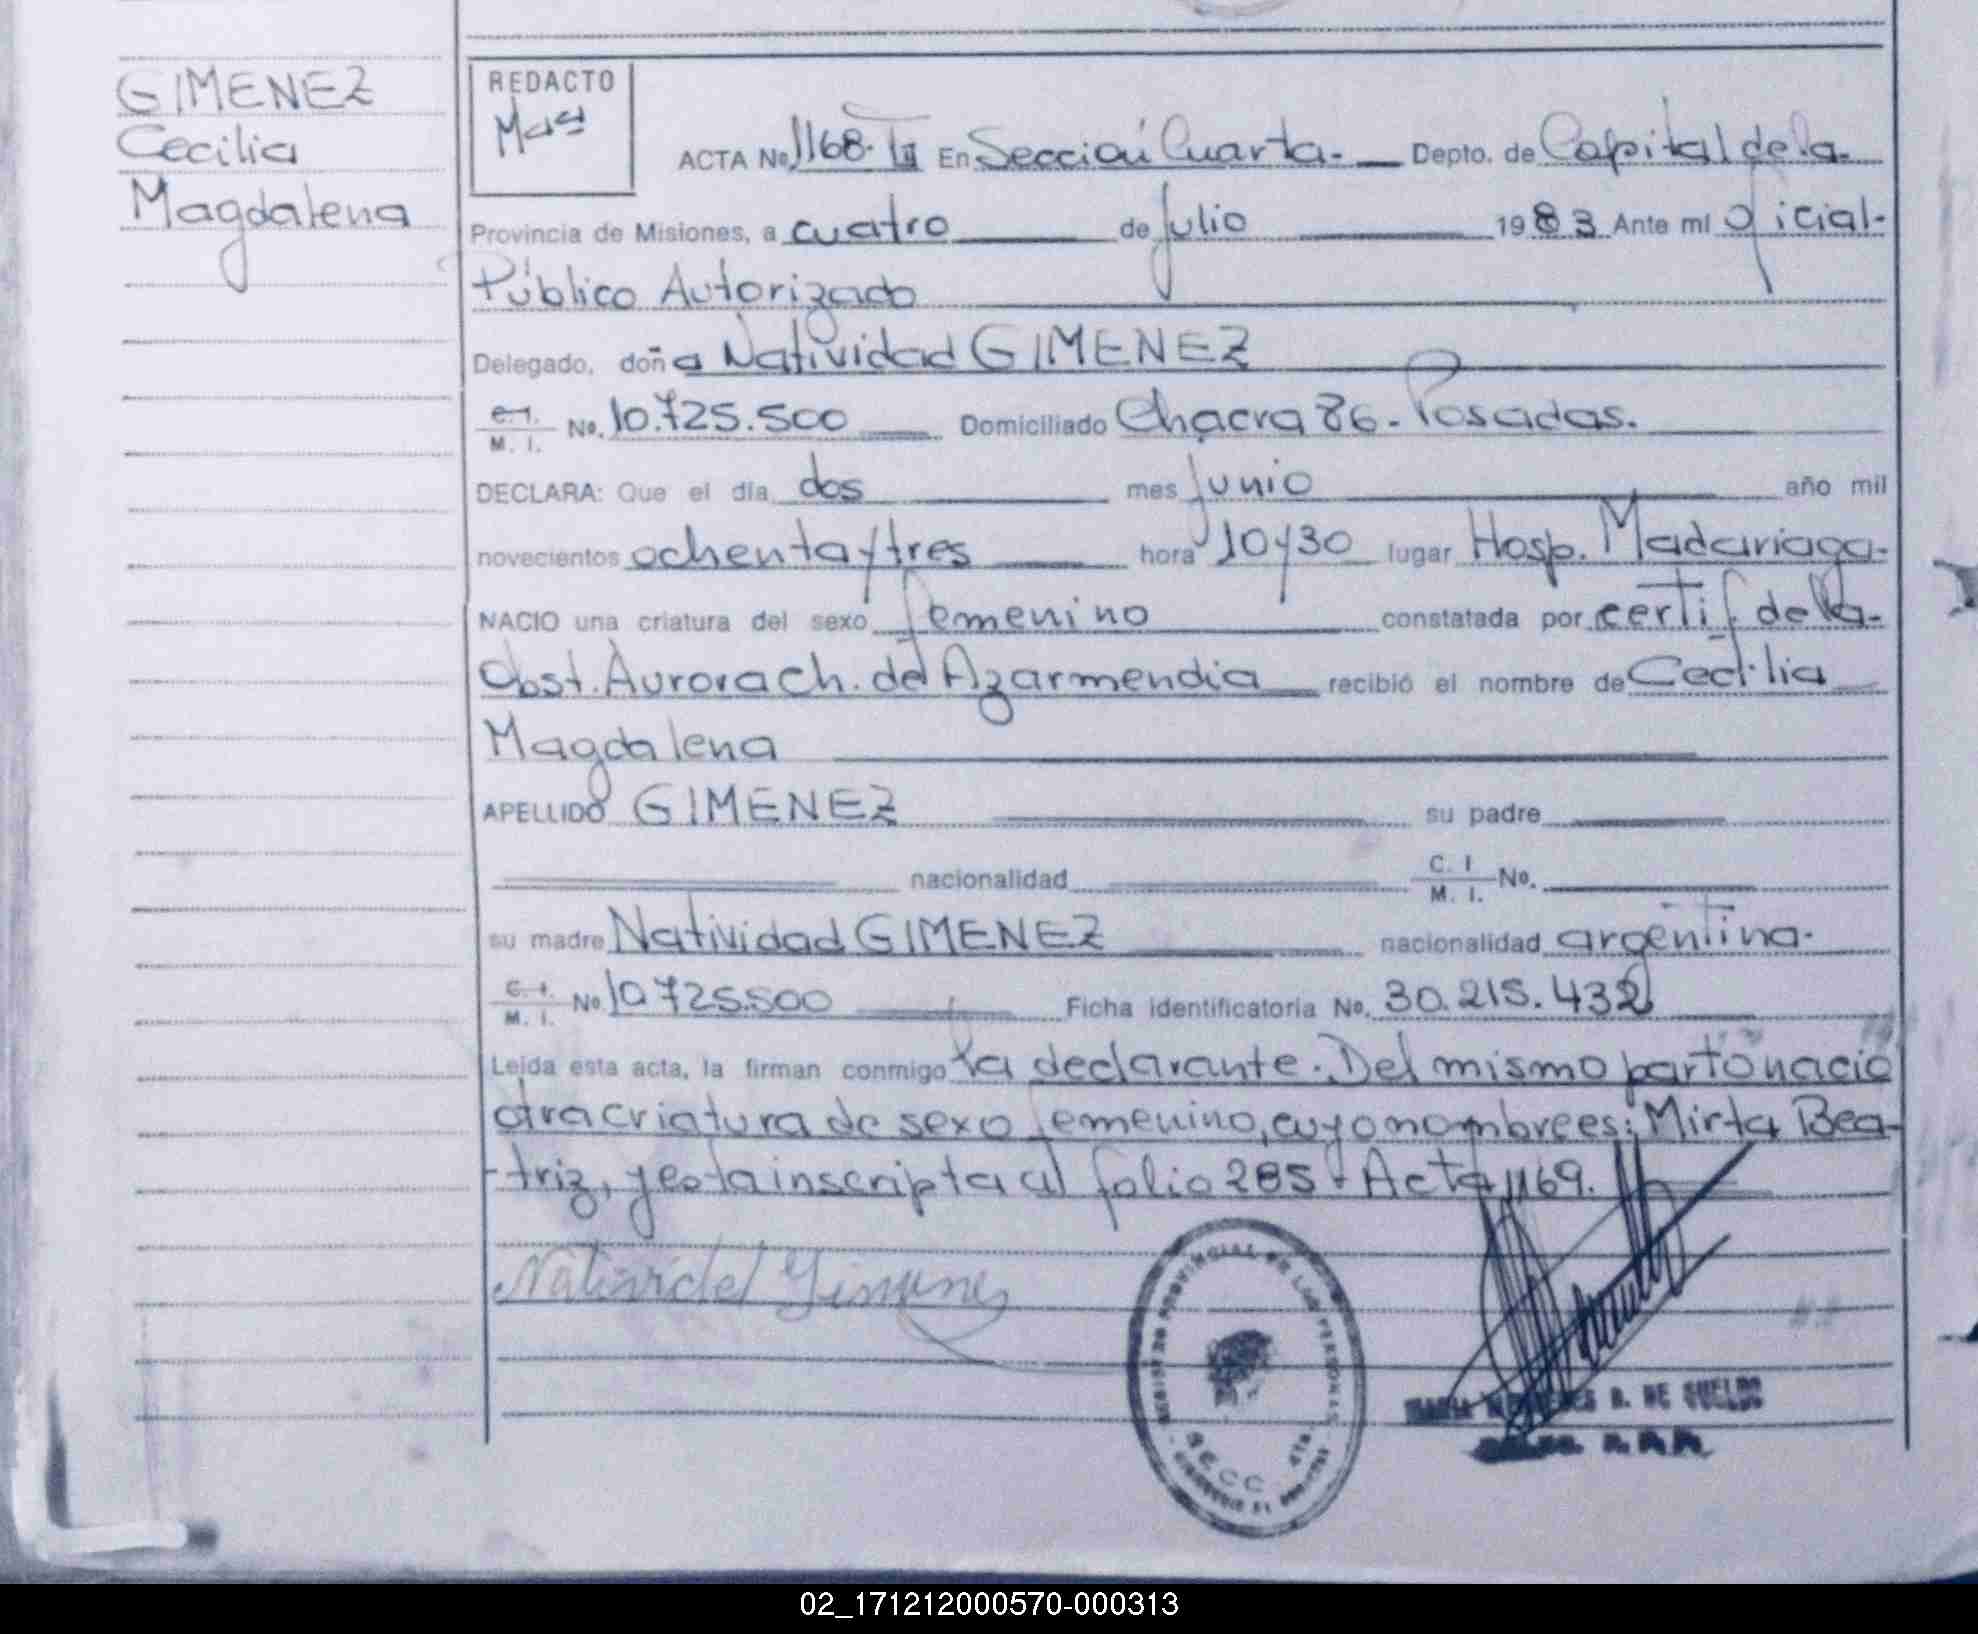 GIMENEZ
Cecilia
Magdalena
REDACTO
ACTA No. 1168-III En Sección Cuarta. Depto. de Capital de la
Provincia de Misiones, a cuatro de julio 1983 Ante mí Oficial
Público Autorizado
Delegado, doña Natividad GIMENEZ
C. I. / M. I. No. 10.725.500 Domiciliado Chacra 86 - Posadas.
DECLARA: Que el día dos mes Junio año mil
novecientos ochenta y tres hora 10 y 30 lugar Hosp. Madariaga
NACIO una criatura del sexo femenino constatada por certif de la
Obst. Aurora Ch. de Azarmendia recibió el nombre de Cecilia
Magdalena
APELLIDO GIMENEZ su padre
nacionalidad C. I / M. I. No.
su madre Natividad GIMENEZ nacionalidad argentina.
C. I. / M. I. No. 10.725.500 Ficha identificatoria No. 30.215.432
Leída esta acta, la firman conmigo la declarante. Del mismo parto nació
otra criatura de sexo femenino, cuyo nombre es: Mirta Bea-
-triz, y esta inscripta al folio 285 - Acta 1169.
Natividad Gimenez
REGISTRO PROVINCIAL DE LAS PERSONAS
SECC. 4TA.
DE SUELDO
02_171212000570-000313